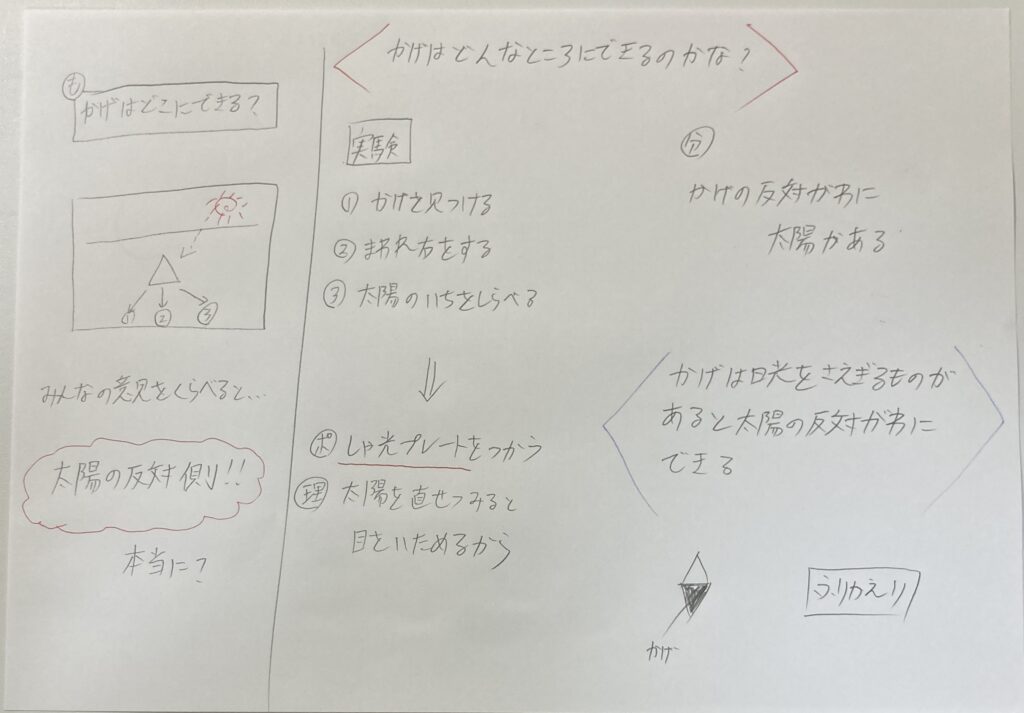 も
かげはどこにできる?
① ② ③
みんなの意見をくらべると...
太陽の反対側!!
本当に?
かげはどんなところにできるのかな?
実験
① かげを見つける
② まわれ右をする
③ 太陽のいちをしらべる
ポ しゃ光プレートをつかう
理 太陽を直せつみると
目をいためるから
分
かげの反対がわに
太陽がある
かげは日光をさえぎるものが
あると太陽の反対がわに
できる
かげ
ふりかえり